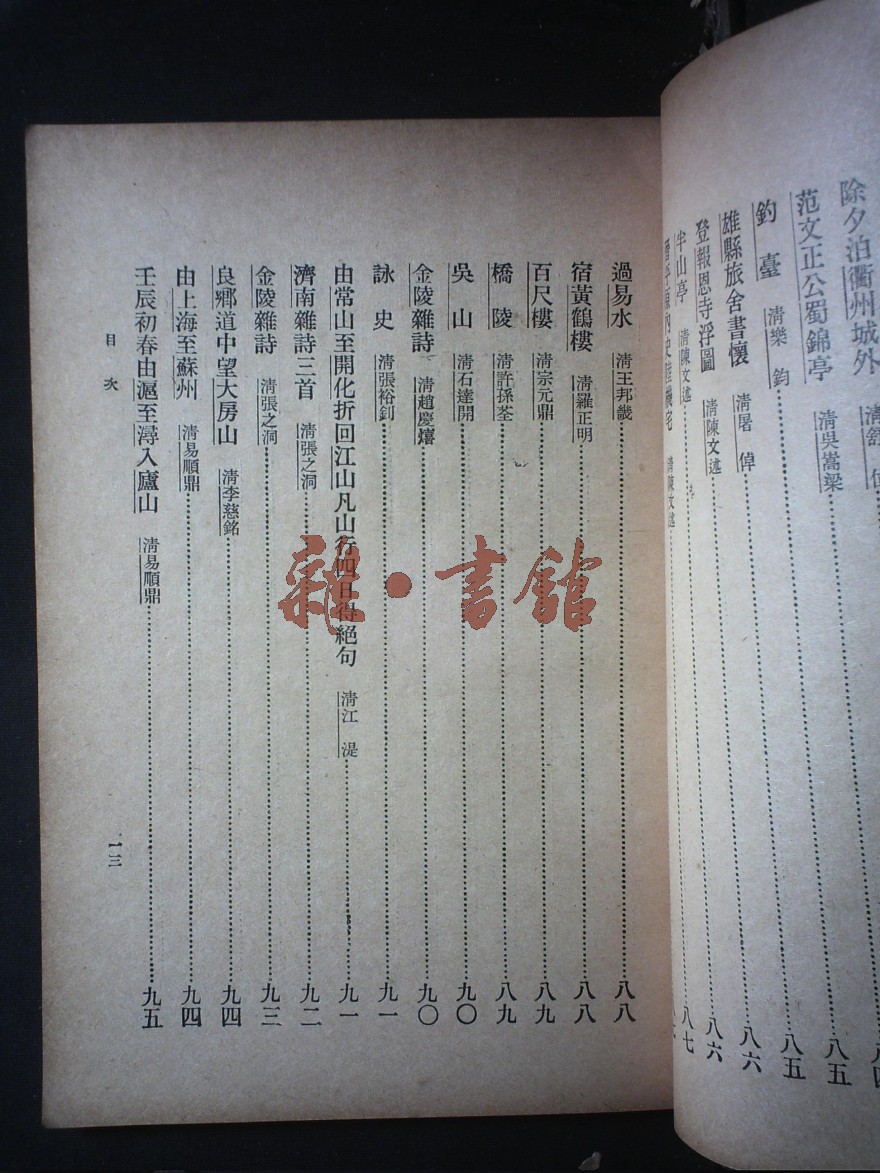 除夕泊衢州城外 清舒位 八四
范文正公蜀錦亭 清吳嵩梁 八五
釣臺 清樂鈞 八五
雄縣旅舍書懷 清屠倬 八六
登報恩寺浮圖 清陳文述 八六
半山亭 清陳文述 八七
清陳文述
過易水 清王邦畿 八八
宿黃鶴樓 清羅正明 八八
百尺樓 清宗元鼎 八九
橋陵 清許孫荃 八九
吳山 清石達開 九〇
金陵雜詩 清趙慶熺 九〇
詠史 清張裕釗 九一
由常山至開化折回江山凡山行四日得絕句 清江湜 九一
濟南雜詩三首 清張之洞 九二
金陵雜詩 清張之洞 九三
良鄉道中望大房山 清李慈銘 九四
由上海至蘇州 清易順鼎 九四
壬辰初春由滬至潯入廬山 清易順鼎 九五
目次
一三
雜·書館